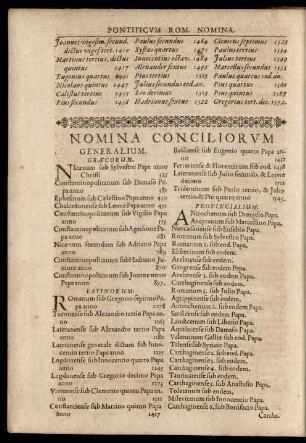 PONTIFICVM ROM. NOMINA.
Joannes vigesim. secund.
dictus vigs tert. 1410
Martinus tertius, dictus
quintus 1417
Eugenius quartus 1431
Nicolaus quintus 1447
Calistus tertius 1455
Pius secundus 1458
Paulus secundus 1464
Xystus quartus 1471
Innocentius octav. 1484
Alexander sextus 1492
Pius tertius 1503
Julius secundus eod. an.
Leo decimus 1513
Hadrianus sextus 1522
Clemens septimus 1523
Paulus tertius 1534
Julius tertius 1550
Marcellus secundus 1555
Paulus quartus eod. an.
Pius quartus 1560
Pius quintus 1566
Gregorius tert. dec. 1572.
NOMINA CONCILIORVM
GENERALIUM.
GRÆCORUM.
NIcænum sub Sylvestro Papa anno
Christi 325
Constantinopolitanum sub Damaso Pa-
pa anno 381
Ephesinum sub Cælestino Papa anno 430
Chalcedonense sub Leone Papa anno 451
Constantinopolitanum sub Vigilio Papa
anno
Constantinopolitanum sub Agathone Pa-
pa anno 681
Nicænum secundum sub Adriano Papa
anno 789
Constantinopolitanum sub Hadriano Ju-
niore anno 870
Constantinopolitanum sub Joanne nono
Papa anno
LATINORUM.
ROmanum sub Gregorio septimo Pa-
pa anno
sub Alexandro tertio Papa an-
no
Lateranense sub Alexandro tertio Papa
anno 1180
Lateranense generale dictum sub Inno-
centio tertio Papa anno 1215
Lugdunense sub Innocentio quarto Papa
anno 1245
Lugdunense sub Gregorio decimo Papa
anno 1273
Viennense sub Clemente quinto Papa an-
no 1311
Constantiense sub Martino quinto Papa
anno 1417
Basiliense sub Eugenio quarto Papa an-
no 1431
Ferrariense & Florentinum sub eod. 1438
Lateranense sub Julio secundo, & Leone
decimo 1512
Tridentinum sub Paulo tertio, & Julio
tertio, & Pio quarto anno 1545.
PROVINCIALIUM.
ANtiochenum sub Dionysio Papa.
Ancyranum sub Marcellino Papa.
Neocæsariense sub Eusebio Papa.
Romanum sub Sylvestro Papa.
Romanum 2. sub eod. Papa.
Eliberinum sub eodem.
Arelatense sub eodem.
Gangrense sub eodem Papa.
Arelatense 2. sub eodem Papa.
Carthaginense sub eodem.
Romanum 3. sub Julio Papa.
Agrippinense sub eodem.
Antiochenum sub eodem Papa.
Sardicense sub eodem Papa.
Laodicenum sub Liberio Papa.
Aquileiense sub Damaso Papa.
Valentinum Galliæ sub eod. Papa.
Telense sub Syricio Papa.
Carthaginense 2. sub eod. Papa.
Carthaginense 3. sub eodem.
Carthaginense 4. sub eodem.
Taurinatense sub eodem.
Carthaginense 5. sub Anastasio Papa.
Toletanum sub eodem.
Milevitanum sub Innocentio Papa.
Carthaginense 6. sub Bonifacio Papa.